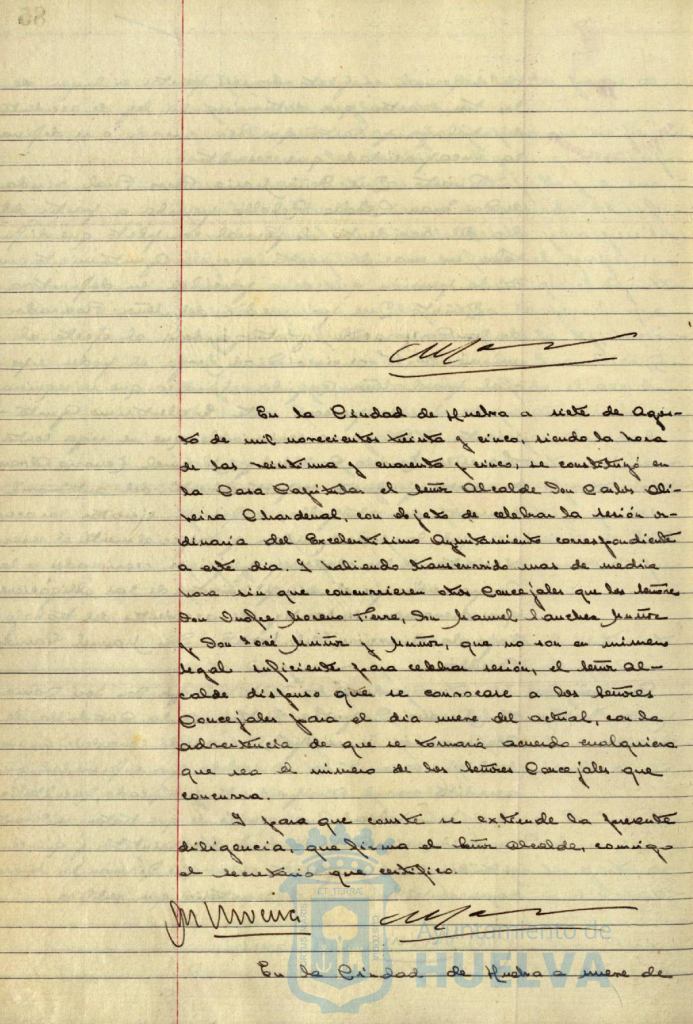 En la Ciudad de Huelva a siete de Agos-
to de mil novecientos treinta y cinco, siendo la hora
de las veintiuna y cuarenta y cinco, se constituyó en
la Casa Capitular el señor Alcalde Don Carlos Oli-
veira Chardenal, con objeto de celebrar la sesión or-
dinaria del Excelentísimo Ayuntamiento correspondiente
a este dia. Y habiendo transcurrido mas de media
hora sin que concurriesen otros Concejales que los señores
Don Moreno Don Manuel Sanchez Muñoz
y Don José Muñoz y Muñoz, que no son en número
legal suficiente para celebrar sesión, el señor Al-
calde dispuso que se convocase a los señores
Concejales para el dia nueve del actual, con la
advertencia de que se tomará acuerdo cualquiera
que sea el número de los señores Concejales que
concurra.
Y para que conste se extiende la presente
diligencia, que firma el señor Alcalde, conmigo
el secretario que certifico.
Oliveira
Ayuntamiento de
HUELVA
En la Ciudad de Huelva a nueve de